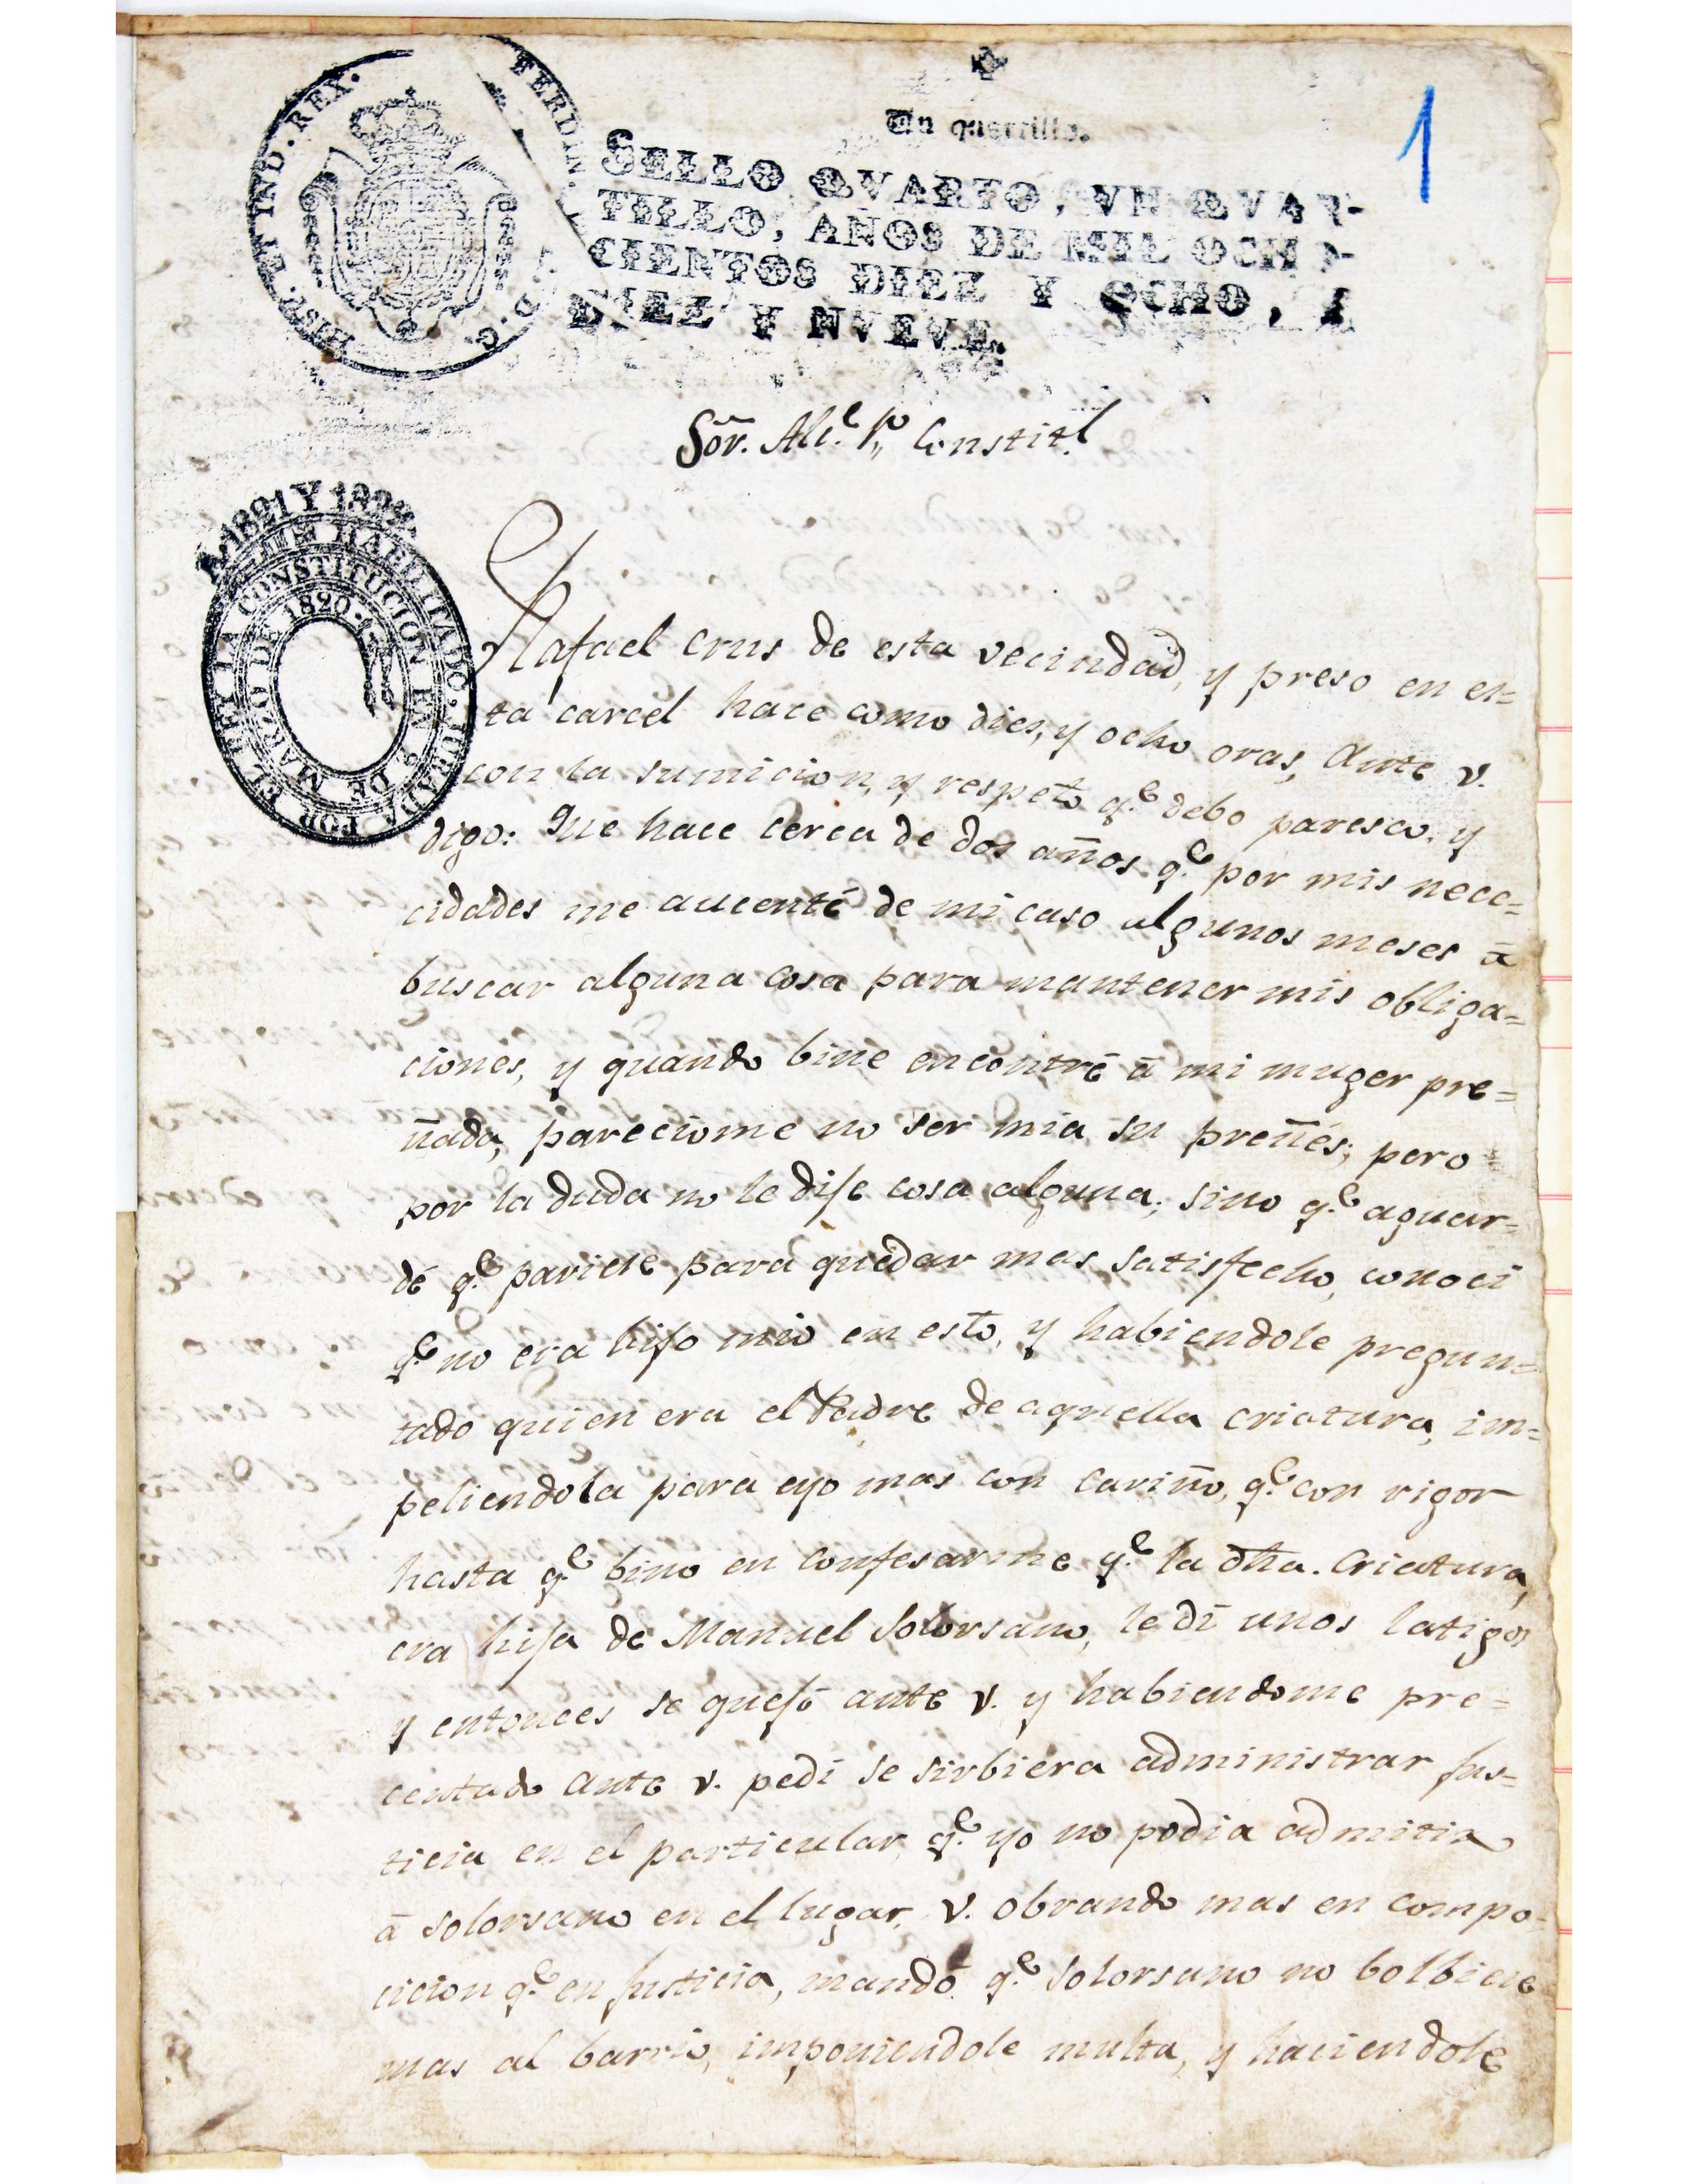 1
Un quartillo.
SELLO QVARTO, VN QVAR-
TILLO, AÑOS DE MIL OCHO-
CIENTOS DIEZ Y OCHO, Y
DIEZ Y NVEVE.
FERDIN. D. G. HISP. ET IND. REX.
Sõr. Alc.e 1.o Constit.l
A. 1821 Y 1822.
HABILITADO. JURADA POR EL REY LA CONSTITUCION EN 9 DE MARZO DE 1820.
Rafael Crus de esta vecindad, y preso en es=
ta carcel hace como dies, y ocho oras, ante v.
con la sumicion, y respeto q.e debo paresco, y
digo: Que hace cerca de dos años q.e por mis nece=
cidades me aucenté de mi caso algunos meses á
buscar alguna cosa para mantener mis obliga=
ciones, y quando bine encontré á mi muger pre=
ñada, pareciome no ser mia su preñés; pero
por la duda no le dije cosa alguna; sino q.e aguar=
dé q.e pariese para quedar mas satisfecho, conoci
q.e no era hijo mio en esto, y habiendole pregun=
tado quien era el Padre de aquella criatura, im=
peliendola para eyo mas con cariño, q.e con rigor
hasta q.e bino en confesarme q.e la dha. Criatura,
era hija de Manuel Solorsano, le dí unos latigos
y entonces se quejó ante v. y habiendome pre=
centado ante v. pedi se sirbiera administrar jus=
ticia en el particular, q.e yo no podia admitir
á solorsano en el lugar, v. obrando mas en compo=
cicion q.e en justicia, mandó q.e solorsano no bolbiese
mas al barrio, imponiendole multa, y haciendole